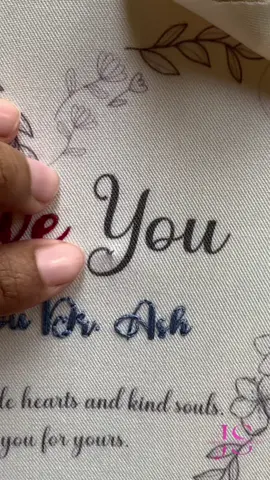 ve You
ou Dr. Ash
le hearts and kind souls.
you for yours.